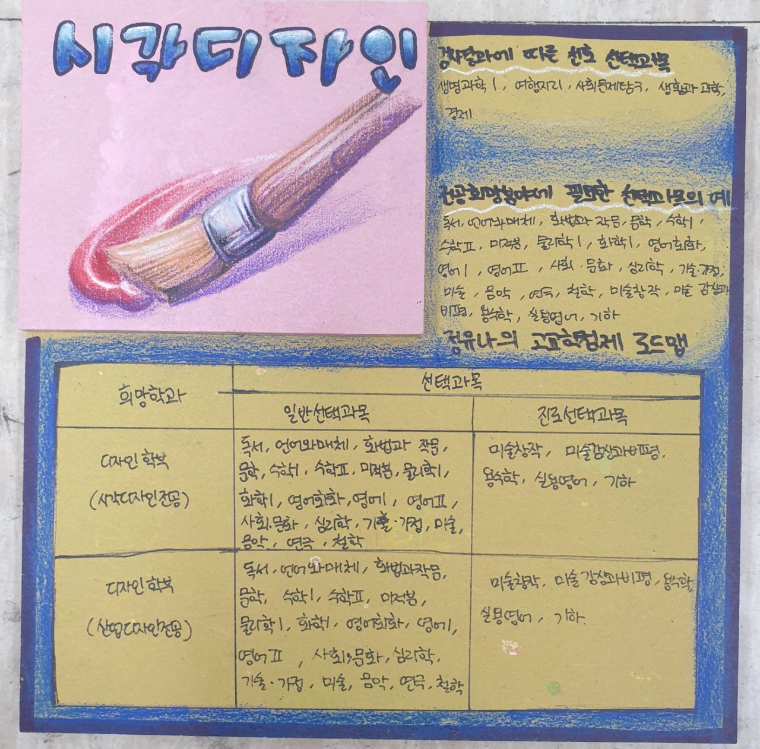 시각디자인
검사결과에 따른 선호 선택과목
생명과학Ⅰ, 여행지리, 사회문제탐구, 생활과 과학,
경제
전공희망분야에 필요한 선택과목의 예
독서, 언어와매체, 화법과 작문, 문학, 수학Ⅰ,
수학Ⅱ, 미적분, 물리학Ⅰ, 화학Ⅰ, 영어회화,
영어Ⅰ, 영어Ⅱ, 사회·문화, 심리학, 기술·가정,
미술, 음악, 연극, 철학, 미술창작, 미술 감상과
비평, 실용영어, 기하
정유나의 고교학점제 로드맵
희망학과
선택과목
일반선택과목
진로선택과목
디자인 학부
(시각디자인전공)
독서, 언어와매체, 화법과 작문,
문학, 수학Ⅰ, 수학Ⅱ, 미적분, 물리학Ⅰ,
화학Ⅰ, 영어회화, 영어Ⅰ, 영어Ⅱ,
사회·문화, 심리학, 기술·가정, 미술,
음악, 연극, 철학
미술창작, 미술감상과비평,
실용영어, 기하
디자인 학부
(산업디자인전공)
독서, 언어와매체, 화법과작문,
문학, 수학Ⅰ, 수학Ⅱ, 미적분,
물리학Ⅰ, 화학Ⅰ, 영어회화, 영어Ⅰ,
영어Ⅱ, 사회·문화, 심리학,
기술·가정, 미술, 음악, 연극, 철학
미술창작, 미술 감상과비평,
실용영어, 기하